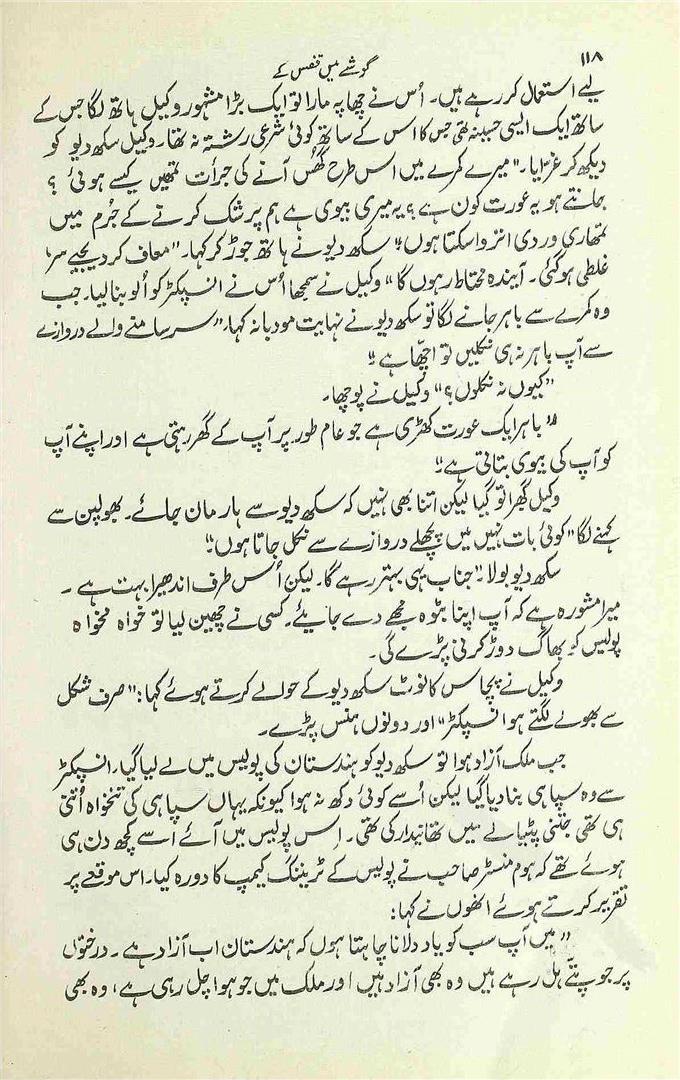 ۱۱۸
گوشے میں قفس کے
لیے استعمال کر رہے ہیں۔ اُس نے چھاپہ مارا تو ایک بڑا مشہور وکیل ہاتھ لگا جس کے
ساتھ ایک ایسی حسینہ تھی جس کا اس کے ساتھ کوئی شرعی رشتہ نہ تھا۔ وکیل سکھ دیو کو
دیکھ کر غرّایا۔ "میرے کمرے میں اس طرح گھُس آنے کی جرأت تمھیں کیسے ہوئی؟
جانتے ہو یہ عورت کون ہے؟ یہ میری بیوی ہے ہم پر شک کرنے کے جُرم میں
تمھاری وردی اتروا سکتا ہوں"۔ سکھ دیو نے ہاتھ جوڑ کر کہا۔ "معاف کر دیجیے سر،
غلطی ہوگئی۔ آیندہ محتاط رہوں گا" وکیل نے سمجھا اُس نے انسپکٹر کو اُلو بنا لیا۔ جب
وہ کمرے سے باہر جانے لگا تو سکھ دیو نے نہایت مودبانہ کہا۔ "سر سامنے والے دروازے
سے آپ باہر نہ ہی نکلیں تو اچھّا ہے"۔
"کیوں نہ نکلوں؟" وکیل نے پوچھا۔
"باہر ایک عورت کھڑی ہے جو عام طور پر آپ کے گھر رہتی ہے اور اپنے آپ
کو آپ کی بیوی بتاتی ہے"۔
وکیل گھبرا تو گیا لیکن اتنا بھی نہیں کہ سکھ دیو سے ہار مان جائے۔ بھولپن سے
کہنے لگا "کوئی بات نہیں میں پچھلے دروازے سے نکل جاتا ہوں"۔
سکھ دیو بولا۔ "جناب یہی بہتر رہے گا۔ لیکن اُس طرف اندھیرا بہت ہے۔
میرا مشورہ ہے کہ آپ اپنا بٹوہ مجھے دے جایئے۔ کسی نے چھین لیا تو خواہ مخواہ
پولیس کو بھاگ دوڑ کرنی پڑے گی۔
وکیل نے پچاس کا نوٹ سکھ دیو کے حوالے کرتے ہوئے کہا: "صرف شکل
سے بھولے لگتے ہو انسپکٹر" اور دونوں ہنس پڑے۔
جب ملک آزاد ہوا تو سکھ دیو کو ہندستان کی پولیس میں لے لیا گیا۔ انسپکٹر
سے وہ سپاہی بنا دیا گیا لیکن اُسے کوئی دکھ نہ ہوا کیونکہ یہاں سپاہی کی تنخواہ اُتنی
ہی تھی جتنی پٹیالے میں تھانیدار کی تھی۔ اِس پولیس میں آئے اسے کچھ دن ہی
ہوئے تھے کہ ہوم منسٹر صاحب نے پولیس کے ٹریننگ کیمپ کا دورہ کیا۔ اس موقعے پر
تقریر کرتے ہوئے انھوں نے کہا:
"میں آپ سب کو یاد دلانا چاہتا ہوں کہ ہندستان اب آزاد ہے۔ درختوں
پر جو پتّے ہل رہے ہیں وہ بھی آزاد ہیں اور ملک میں جو ہوا چل رہی ہے، وہ بھی